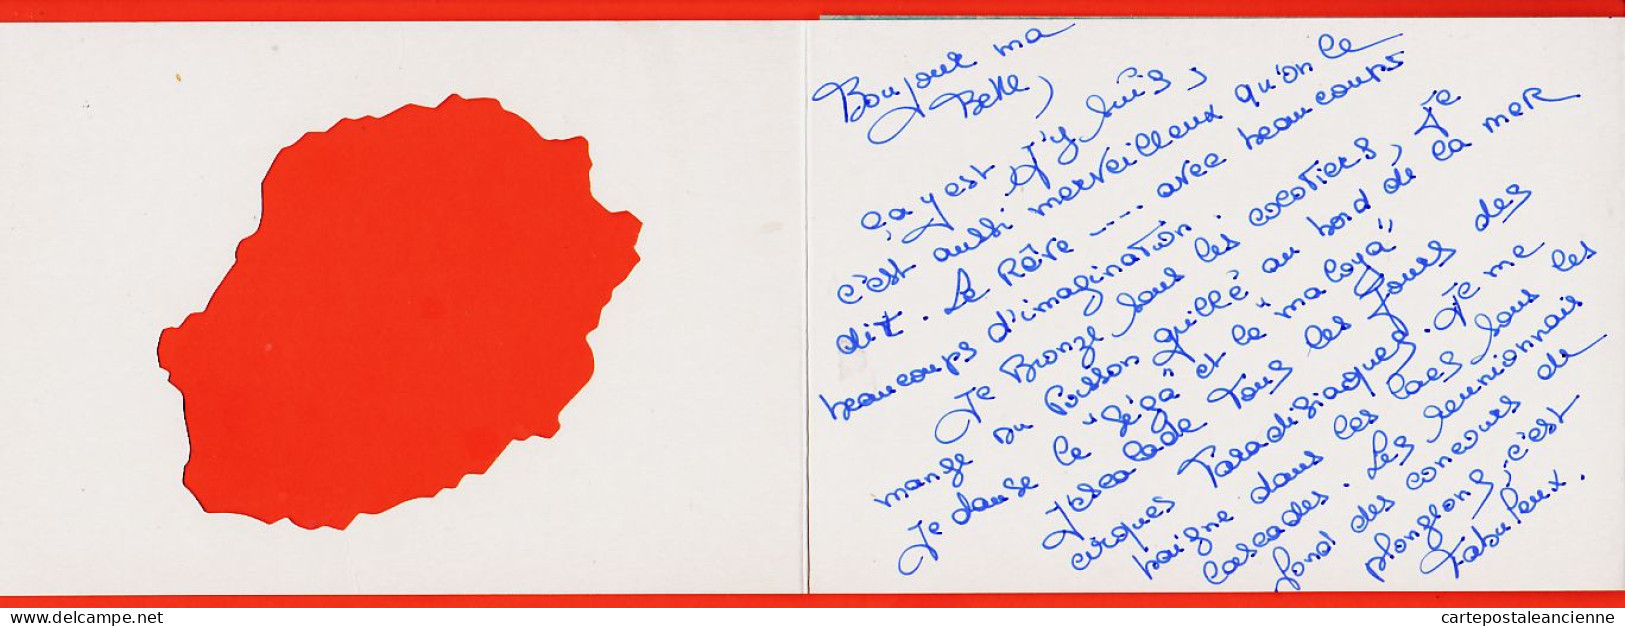 Bonjour ma
Belle,
ça y est J'y suis,
c'est aussi merveilleux qu'on le
dit. Le Rêve ---- avec beaucoups
beaucoups d'imagination.
Je Bronze sous les cocotiers, Je
mange du Poisson grillé au bord de la mer
Je danse le "séga" et le "maloya"
J'escalade Tous les Jours des
cirques Paradisiaques. Je me
baigne dans les lacs sous les
cascades. Les reunionnais
font des concours de
plongeons, c'est
Fabuleux.
delcampe.net
cartepostaleancienne